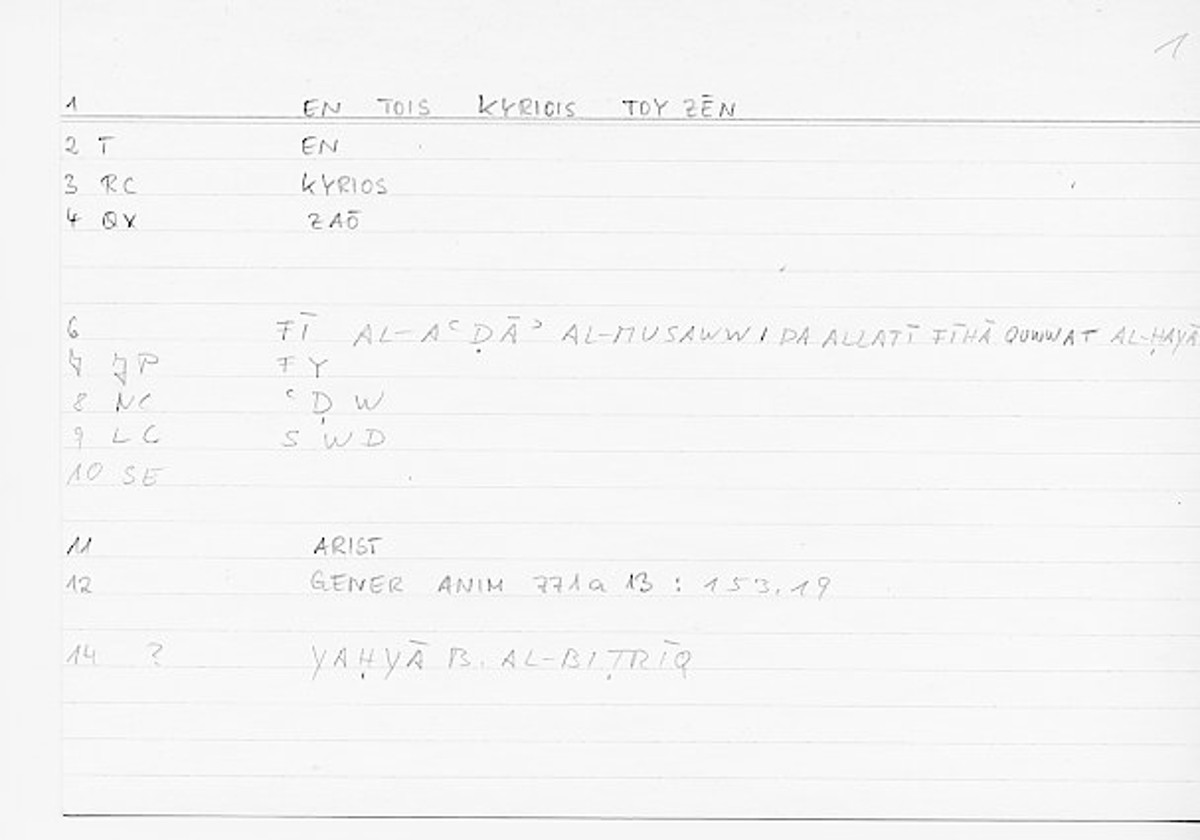 1
1 EN TOIS KYRIOIS TOY ZĒN
2 T EN
3 RC KYRIOS
4 QX ZAŌ
6 FĪ AL-AʿḌĀʾ AL-MUSAWWIDA ALLATĪ FĪHĀ QUWWAT AL-ḤAYĀ
7 JP FY
8 NC ʿḌW
9 LC SWD
10 SE
11 ARIST
12 GENER ANIM 771a 13 : 153.19
14 ? YAḤYĀ B. AL-BIṬRĪQ